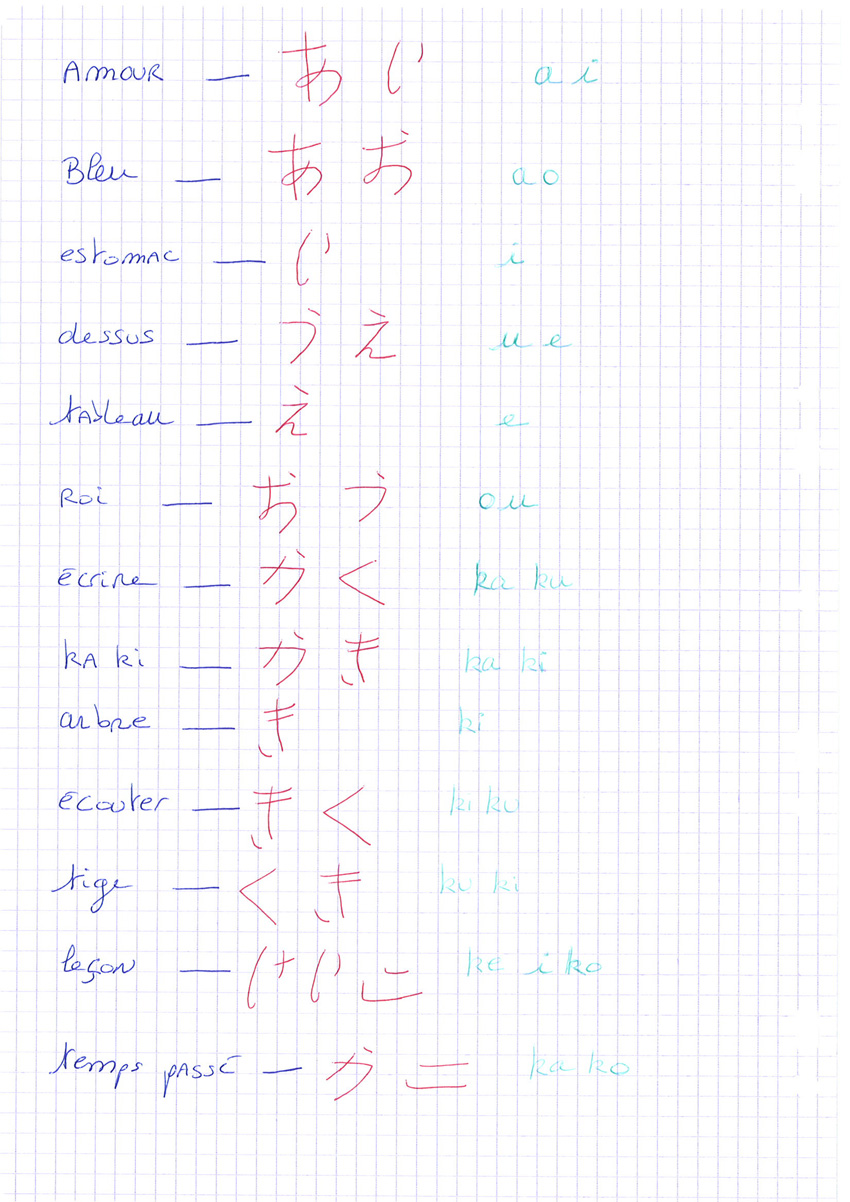 AMOUR — あい ai
Bleu — あお ao
estomac — い i
dessus — うえ ue
tableau — え e
Roi — おう ou
écrire — かく ka ku
KA Ki — かき ka ki
arbre — き ki
écouter — きく ki ku
tige — くき ku ki
leçon — けいこ ke i ko
temps passé — かこ ka ko